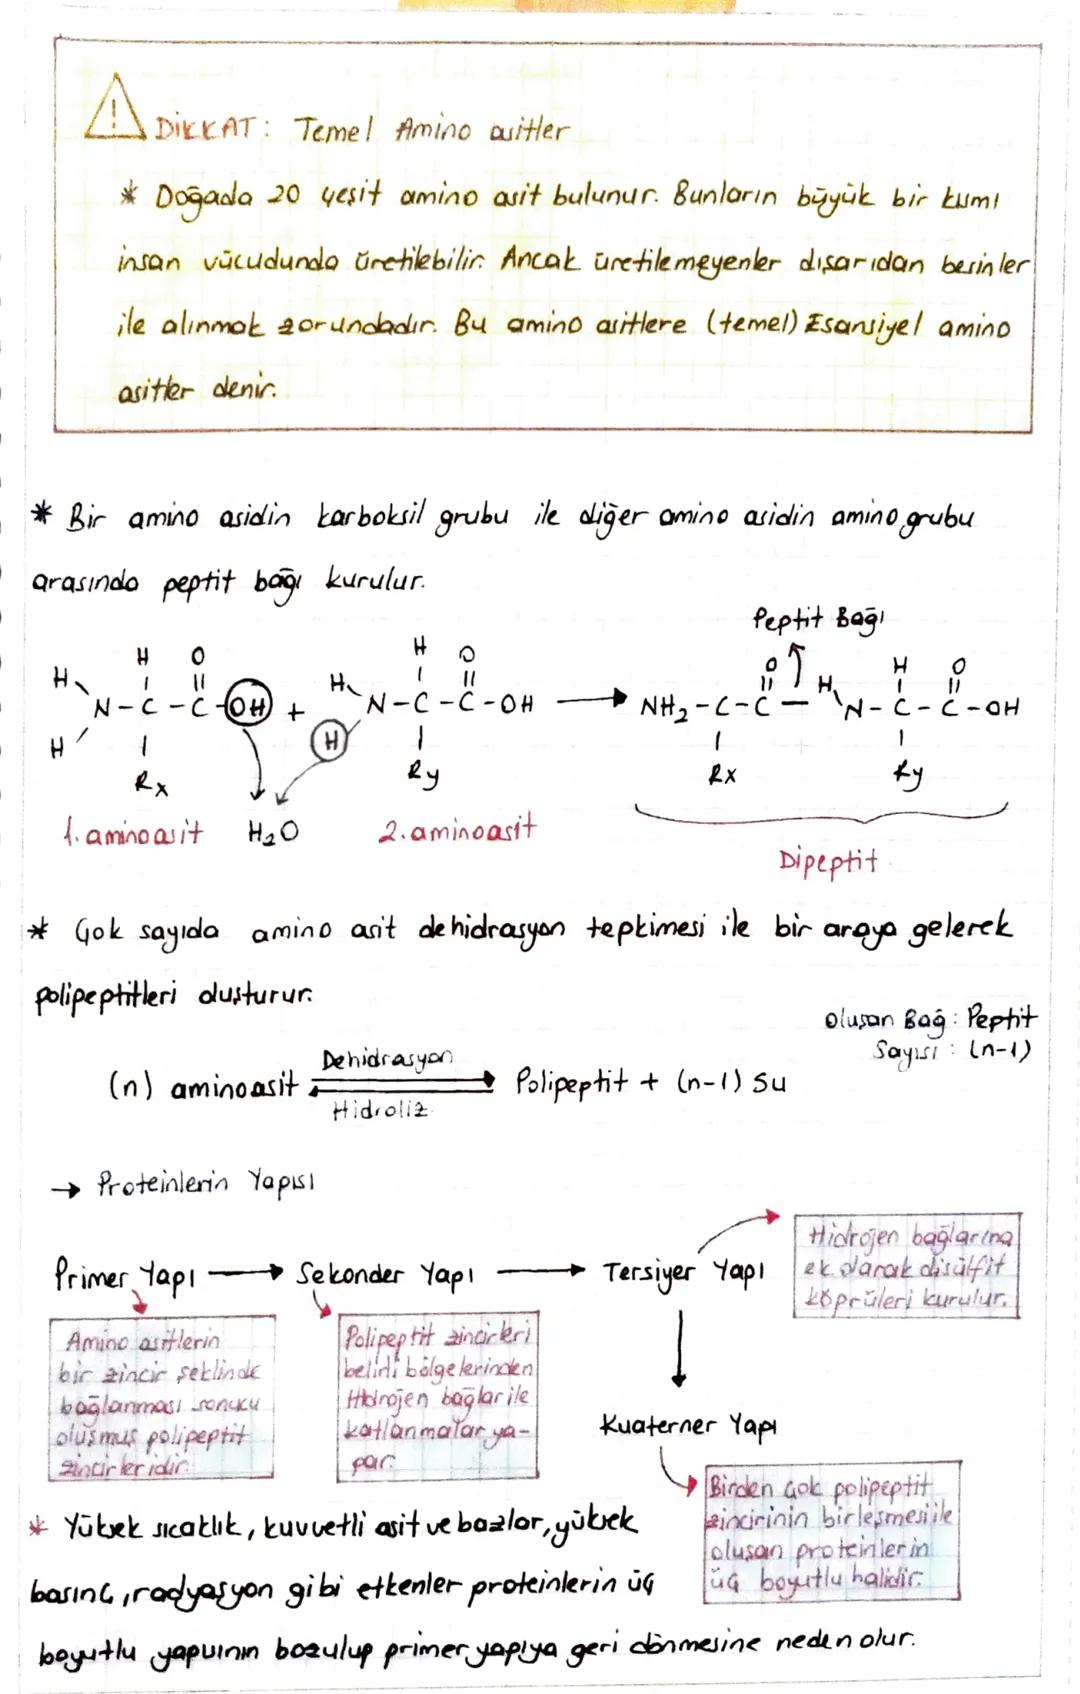 DİKKAT: Temel Amino asitler
* Doğada 20 çeşit amino asit bulunur. Bunların büyük bir kısmı
insan vücudunda üretilebilir. Ancak üretilemeyenler dışarıdan besinler
ile alınmak zorundadır. Bu amino asitlere (temel) Esansiyel amino
asitler denir.
* Bir amino asidin karboksil grubu ile diğer amino asidin amino grubu
arasında peptit bağı kurulur.
Peptit Bağı
H O H O O H O
H H H
N-C-C-OH + N-C-C-OH → NH₂-C-C-N-C-C-OH
H H
Rx Ry Rx Ry
1. aminoasit H₂O 2. aminoasit
Dipeptit
* Çok sayıda amino asit dehidrasyon tepkimesi ile bir araya gelerek
polipeptitleri oluşturur.
Oluşan Bağ: Peptit
Sayısı: (n-1)
Dehidrasyon
(n) aminoasit ⇌ Polipeptit + (n-1) Su
Hidroliz
→ Proteinlerin Yapısı
Primer Yapı → Sekonder Yapı → Tersiyer Yapı
Hidrojen bağlarına
ek olarak disülfit
köprüleri kurulur.
Amino asitlerin
bir zincir şeklinde
bağlanması sonucu
oluşmuş polipeptit
zincirleridir.
Polipeptit zincirleri
belirli bölgelerinden
Hidrojen bağlar ile
katlanmalar ya-
par.
Kuaterner Yapı
Birden çok polipeptit
zincirinin birleşmesi ile
oluşan proteinlerin
üç boyutlu halidir.
* Yüksek sıcaklık, kuvvetli asit ve bazlar, yüksek
basınç, radyasyon gibi etkenler proteinlerin üç
boyutlu yapısının bozulup primer yapıya geri dönmesine neden olur.